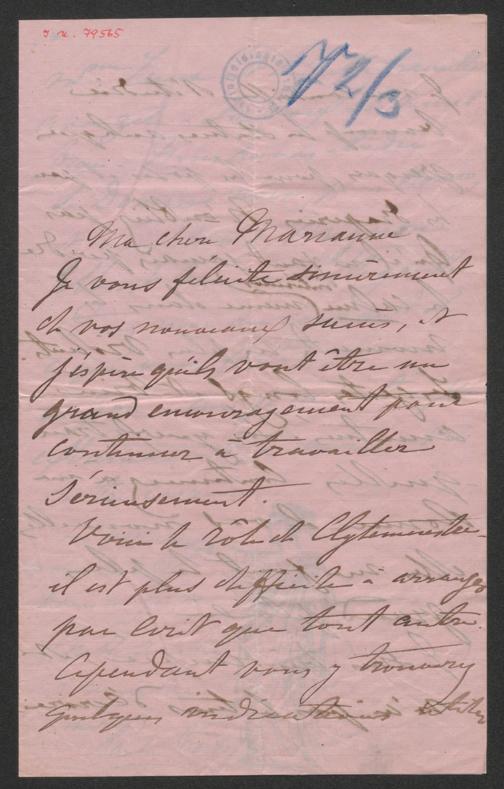 I. N. 79565
72/3
Ma chère Marianne
Je vous félicite sincèrement
de vos nouveaux succès, et
j'espère qu'ils vont être un
grand encouragement pour
continuer à travailler
sérieusement.
Voici le rôle de Clytemnestre
il est plus difficile à arranger
par écrit que tout autre.
Cependant vous y trouverez
quelques indications utiles